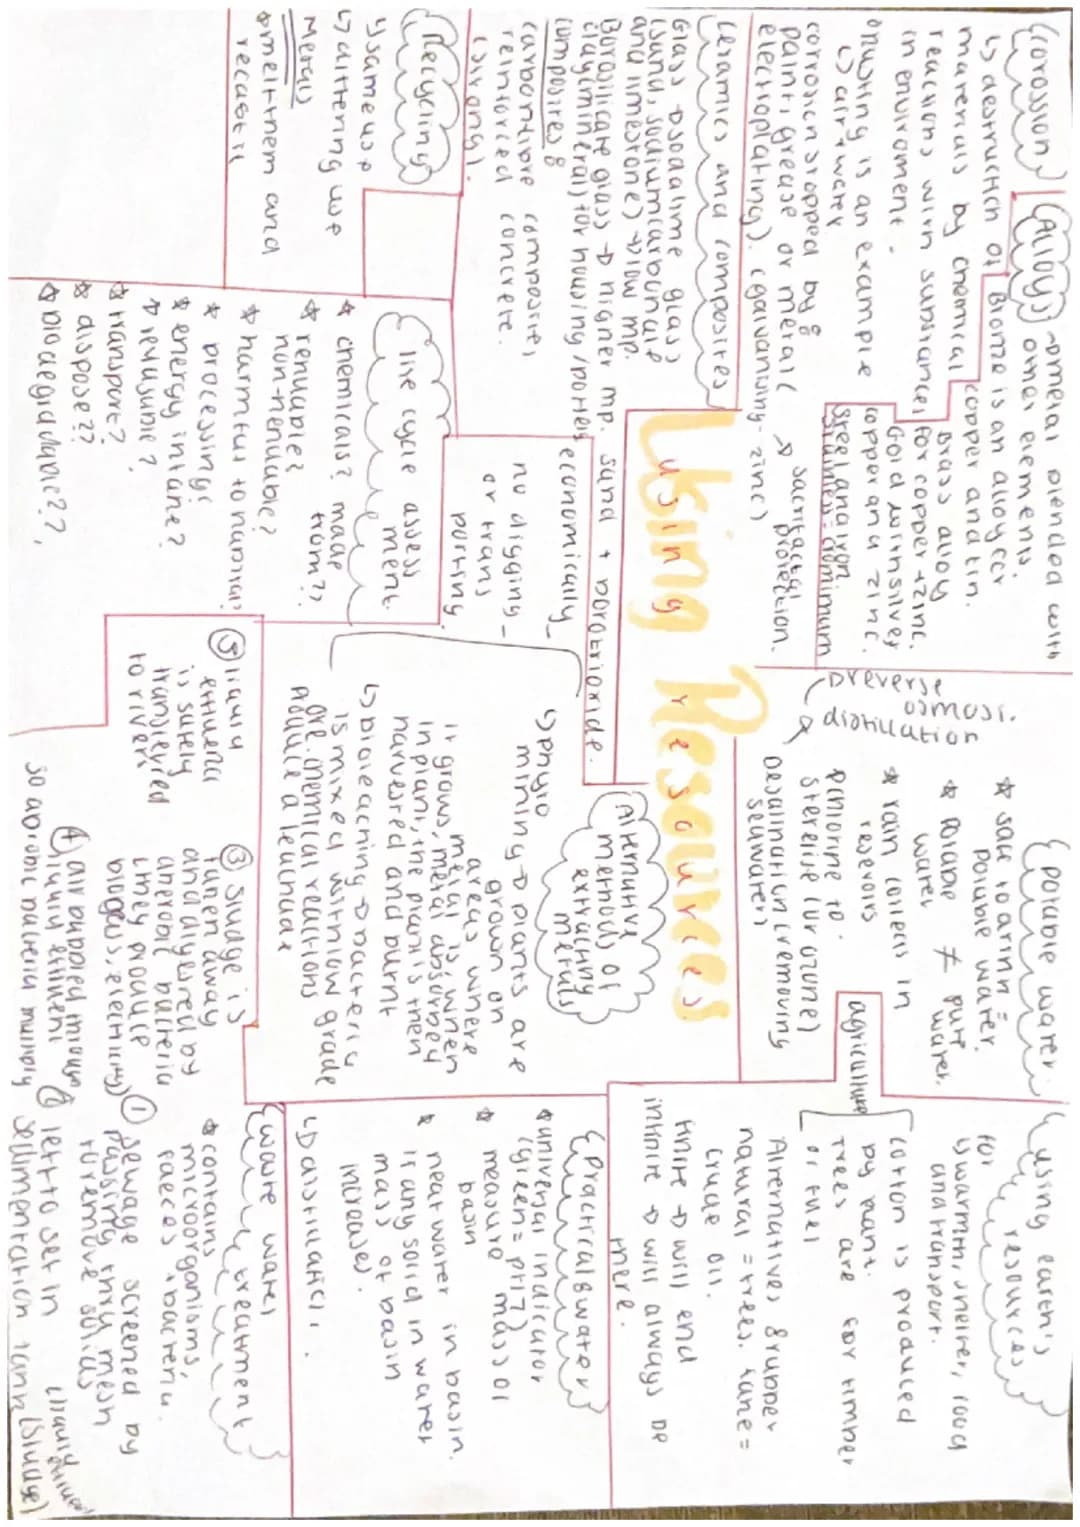 Using Resources
Corossion
↳ destruction of
materials by chemical
reactions with substances
in enviroment.
rusting is an example
↳ air + water
corrosion stopped by:
paint, grease or metal (
electroplating). (galvanising - zinc)
→ sacrifactial
protection.
Alloys → metal blended with
other elements.
Bronze is an alloy of
copper and tin.
Brass alloy
for copper + zinc.
Gold with silver
copper and zinc
steel and iron
stainless = cromimum
ceramics and composites
Glass → sodalime glass
(sand, sodium carbonate
and limestone) → low mp.
Borosilicate glass → higher mp. sand + borotrioxide.
clay (mineral) for housing/pottery
composites:
carbon fibre composites,
reinforced concrete.
(strong).
Recycling
↳ same use
↳ altering use
metals
☆ melt them and
recast it
economically
no digging
or trans
porting.
life cycle assess
ment.
★ chemicals? made
from??
★ renuable?
non-renuable?
★ harmful to humans?
★ processing?
★ energy intane?
★ transport?
★ dispose??
★ biodegradable??
Alternative
methods of
extracting
metals
↳ phyto
mining → plants are
grown on
areas where
metal is, when
it grows, metal absorbed
in plant, the plant is then
harvested and burnt
↳ bioleaching → bacteria
is mixed with low grade
ore. chemical reactions
produce a leachate
Potable water.
★ safe to drink =
potable water.
★ Potable ≠ pure
water. water.
★ rain collects in
resevoirs
★ chlorine to
sterelise (or ozone)
Desalination (removing
seawater)
→ reverse
osmosi.
→ distillation
using earth's
resources
for
↳ warmth, shelter, food
and transport.
agriculture
cotton is produced
by plant.
trees are for timber
or fuel
Alternatives: rubber
natural = trees. fake =
crude oil.
finite → will end
infinite → will always be
there.
Practical: water
★ universal indicator
(green = pH 7)
★ measure mass of
basin
★ heat water in basin.
if any solid in water
mass of basin
increases.
↳ Distillation.
Waste water
treatment
★ contains
microorganisms,
faeces + bacteria.
① sewage screened by
passing thru mesh
to remove solids
② left to set in
sedimentation tank (sludge)
liquid effluent
③ Sludge is
taken away
and digested by
anerobic bacteria
they produce
biogas, electricity
④ air bubbled through
liquid effluent
so aerobic bacteria multiply
⑤ liquid
effluent
is safely
transferred
to river